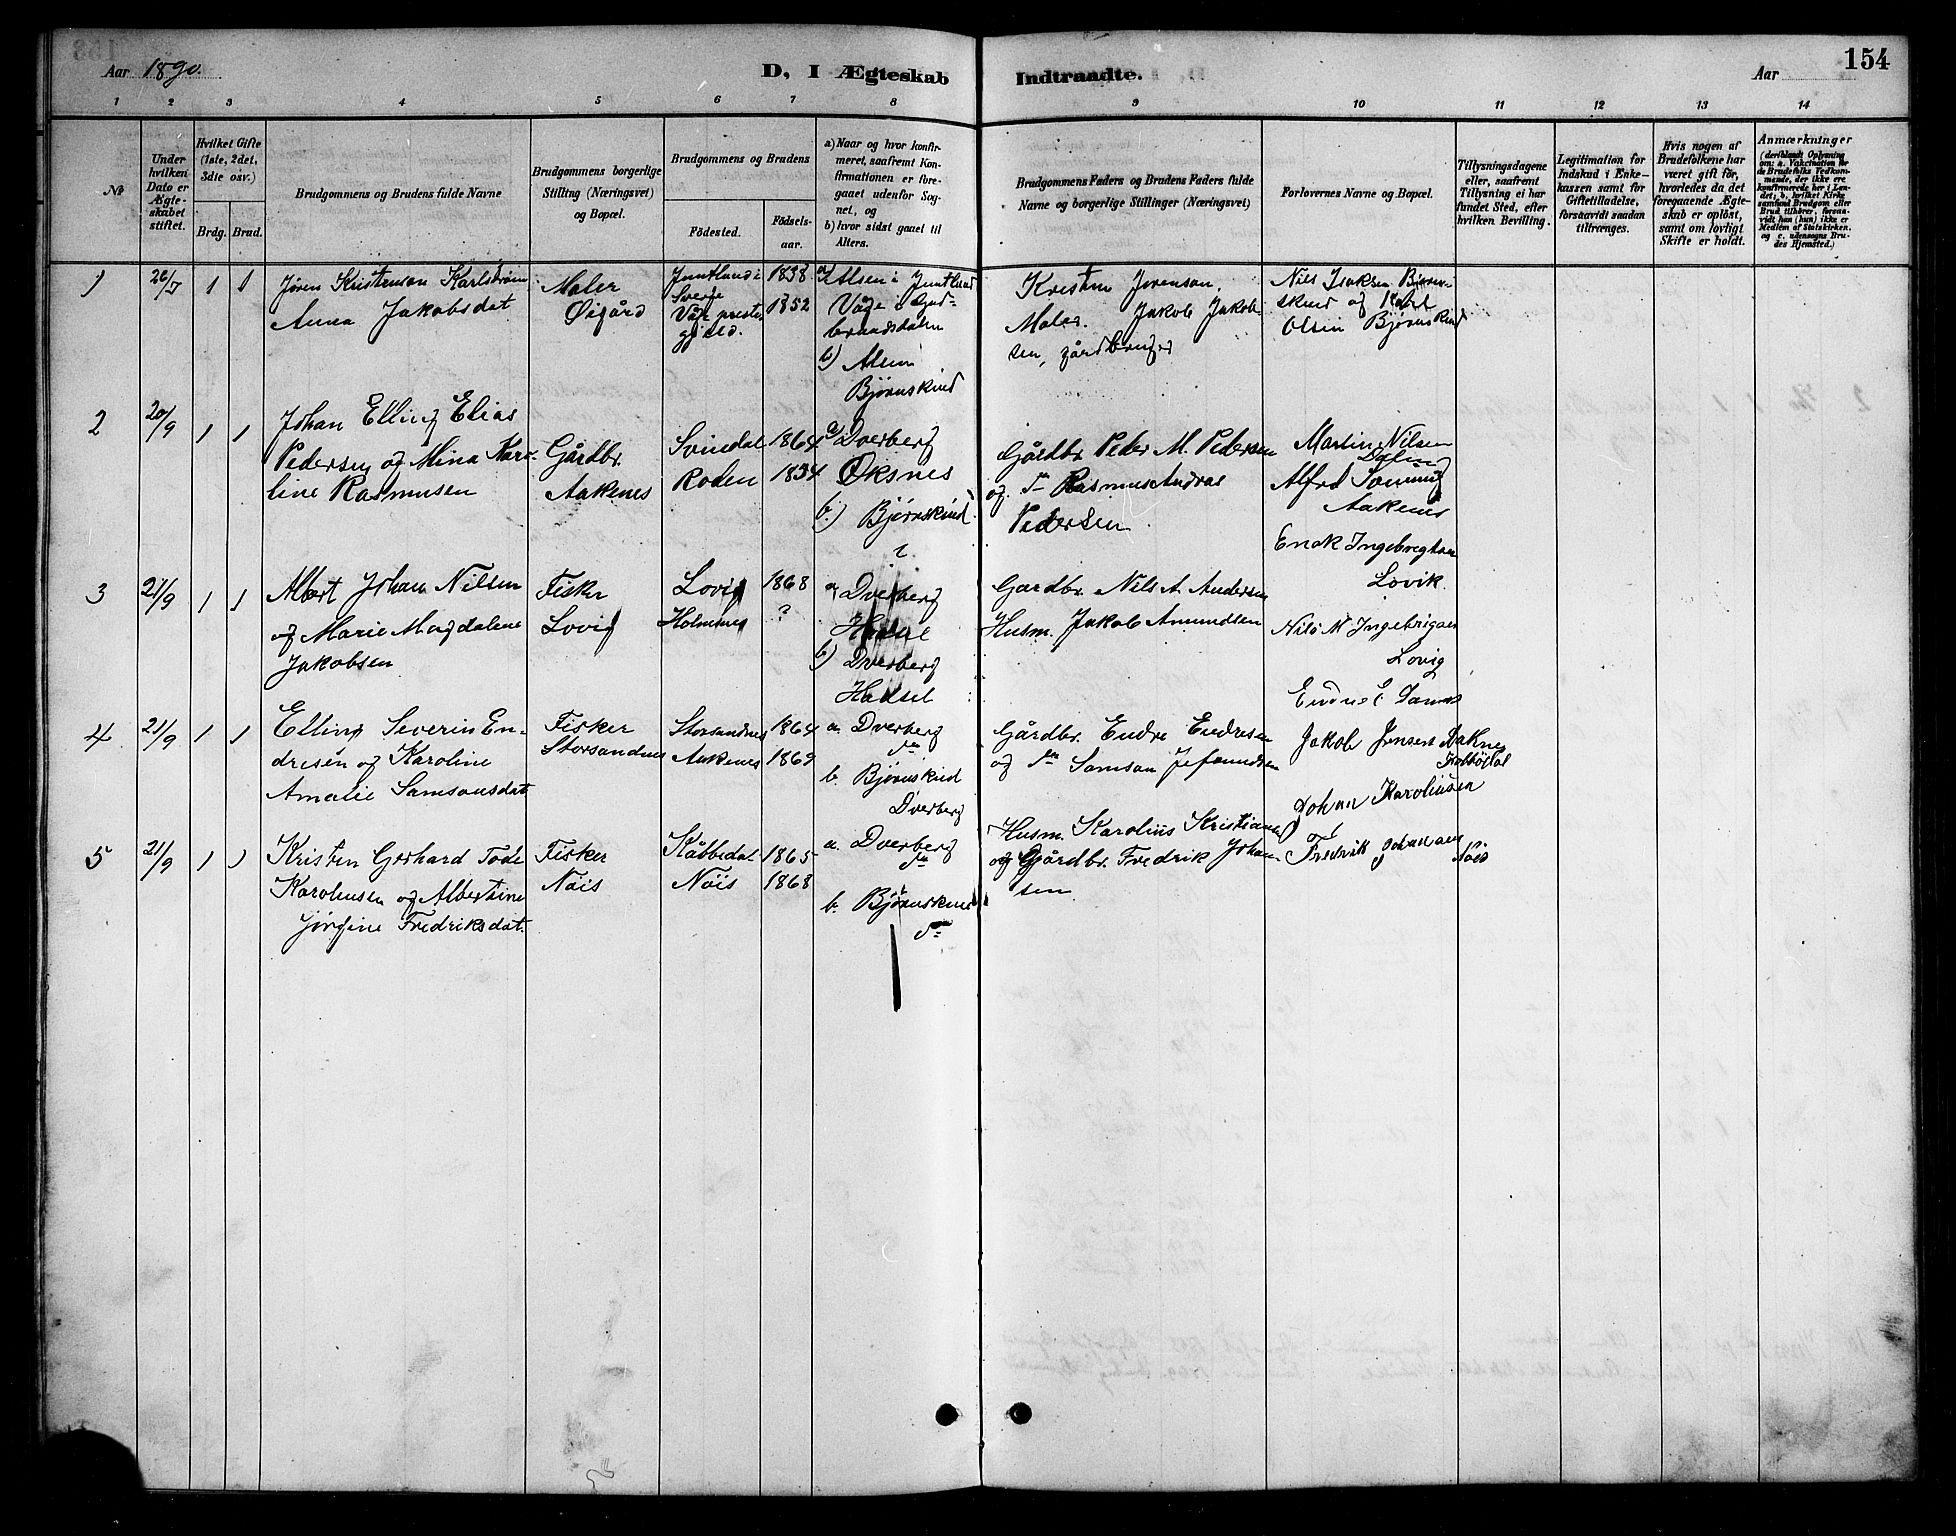 154
Aar 1890.
D, I Ægteskab Indtraadte.
Aar
1 2 3 4 5 6 7 8 9 10 11 12 13 14
No
Under hvilken Dato er Ægteskabet stiftet.
Hvilket Gifte (1ste, 2det, 3die osv.)
Brdg. Brud.
Brudgommens og Brudens fulde Navne
Brudgommens borgerlige Stilling (Næringsvei) og Bopæl.
Brudgommens og Brudens
Fødested.
Fødselsaar.
a) Naar og hvor konfirmeret, saafremt Konfirmationen er foregaaet udenfor Sognet, og
b) hvor sidst gaaet til Alters.
Brudgommens Faders og Brudens Faders fulde Navne og borgerlige Stillinger (Næringsvei)
Forlovernes Navne og Bopæl.
Tillysningsdagene eller, saafremt Tillysning ei har fundet Sted, efter hvilken Bevilling.
Legitimation for Indskud i Enkekassen samt for Giftetilladelse, forsaavidt saadan tiltrænges.
Hvis nogen af Brudefolkene har været gift før, hvorledes da det foregaaende Ægteskab er opløst, samt om lovligt Skifte er holdt.
Anmærkninger
(deriblandt Oplysning om: a. Vakcination for de Brudefolks Vedkommende, der ikke ere konfirmerede her i Landet; b. hvilket Kirkesamfund Brudgom eller Brud tilhører, forsaavidt han (hun) ikke er Medlem af Statskirken, og c. udensogns Brudes Hjemsted.)
1 26/5 1 1
Jøren Kristenson Karlstrøm
Anna Jakobsdat
Maler
Øigård
Jemtland i
Sverje
Våge prestegjeld.
1838
1852
a) Alsen i Jemtland
Våge i Gudbrandsdalen
b) Alsen
Bjørnskind
Kristen Jørenson,
Maler. Jakob Jakobsen, gårdbruger
Nils Isaksen Bjørnskind og Karl
Olsen Bjørnskind
2 20/9 1 1
Johan Elling Elias
Pedersen og Mina Karoline Rasmusen
Gårdbr.
Aakenes
Svindal
Roden
1864
1834
a) Dverberg
Øksnes
b.) Bjørnskind
Gårdbr. Peder M. Pedersen
og do Rasmus Andreas
Pedersen
Martin Nilsen
Alfred
Aakenes
3 21/9 1 1
Albert Johan Nilsen
og Marie Magdalene
Jakobsen
Fisker
Lovig
Lovig
Holmenes
1868
?
a) Dverberg
b) Dverberg
Hadsel
Gardbr. Nils A. Andersen
Husm. Jakob Amundsen
Enok Ingebregtsen
Lovik.
Nils M Ingebrigtsen
Lovig
4 21/9 1 1
Elling Severin Endresen og Karoline
Amalie Samsonsdat
Fisker
Storsandnes
Storsandnes
Aakenes
1864
1869
a. Dverberg
do
b. Bjørnskind
Dverberg
Gårdbr. Endre Endresen
og do Samson
Jakob Jensen Aaknes
5 21/9 1 1
Kristen Gerhard Tode
Karoliusen og Albertine
Jørgine Fredriksdat.
Fisker
Nöis
Kåbbedal
Nöis
1865
1868
a. Dverberg
do
b. Bjørnskind
do
Husm. Karolius Kristiansen
og Gjårdbr. Fredrik Johansen
Johan Karoliusen
Fredrik Johansen
Nöis